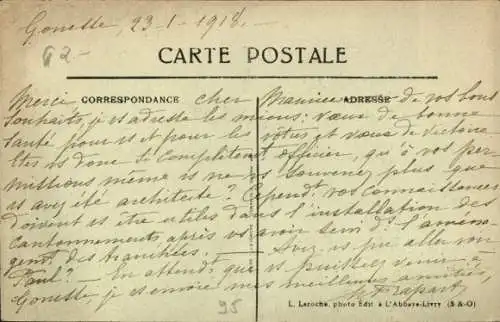 Gonesse, 23-1-1918.
G2-
CARTE POSTALE
CORRESPONDANCE ADRESSE
Merci cher Maurice de vos bons
souhaits, je vs adresse les miens: vœux de bonne
santé pour vs et pour les vôtres et vœux de victoire
Etes vs donc si complètement officier, qu'à vos per-
missions même vs ne vs souvenez plus que
vs avez été architecte? Cependt vos connaissances
doivent vs être utiles dans l'installation des
cantonnements, après vs avoir servi ds l'aména-
gemt des tranchées. — Avez vs pu aller voir
Paul? — En attendt que vs puissiez venir à
Gonesse, je vs envoie mes meilleures amitiés,
95
L. Laroche, photo Edit à L'Abbaye-Livry (S-&-O)